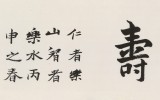 壽
仁者樂
山智者
樂水丙
申之春